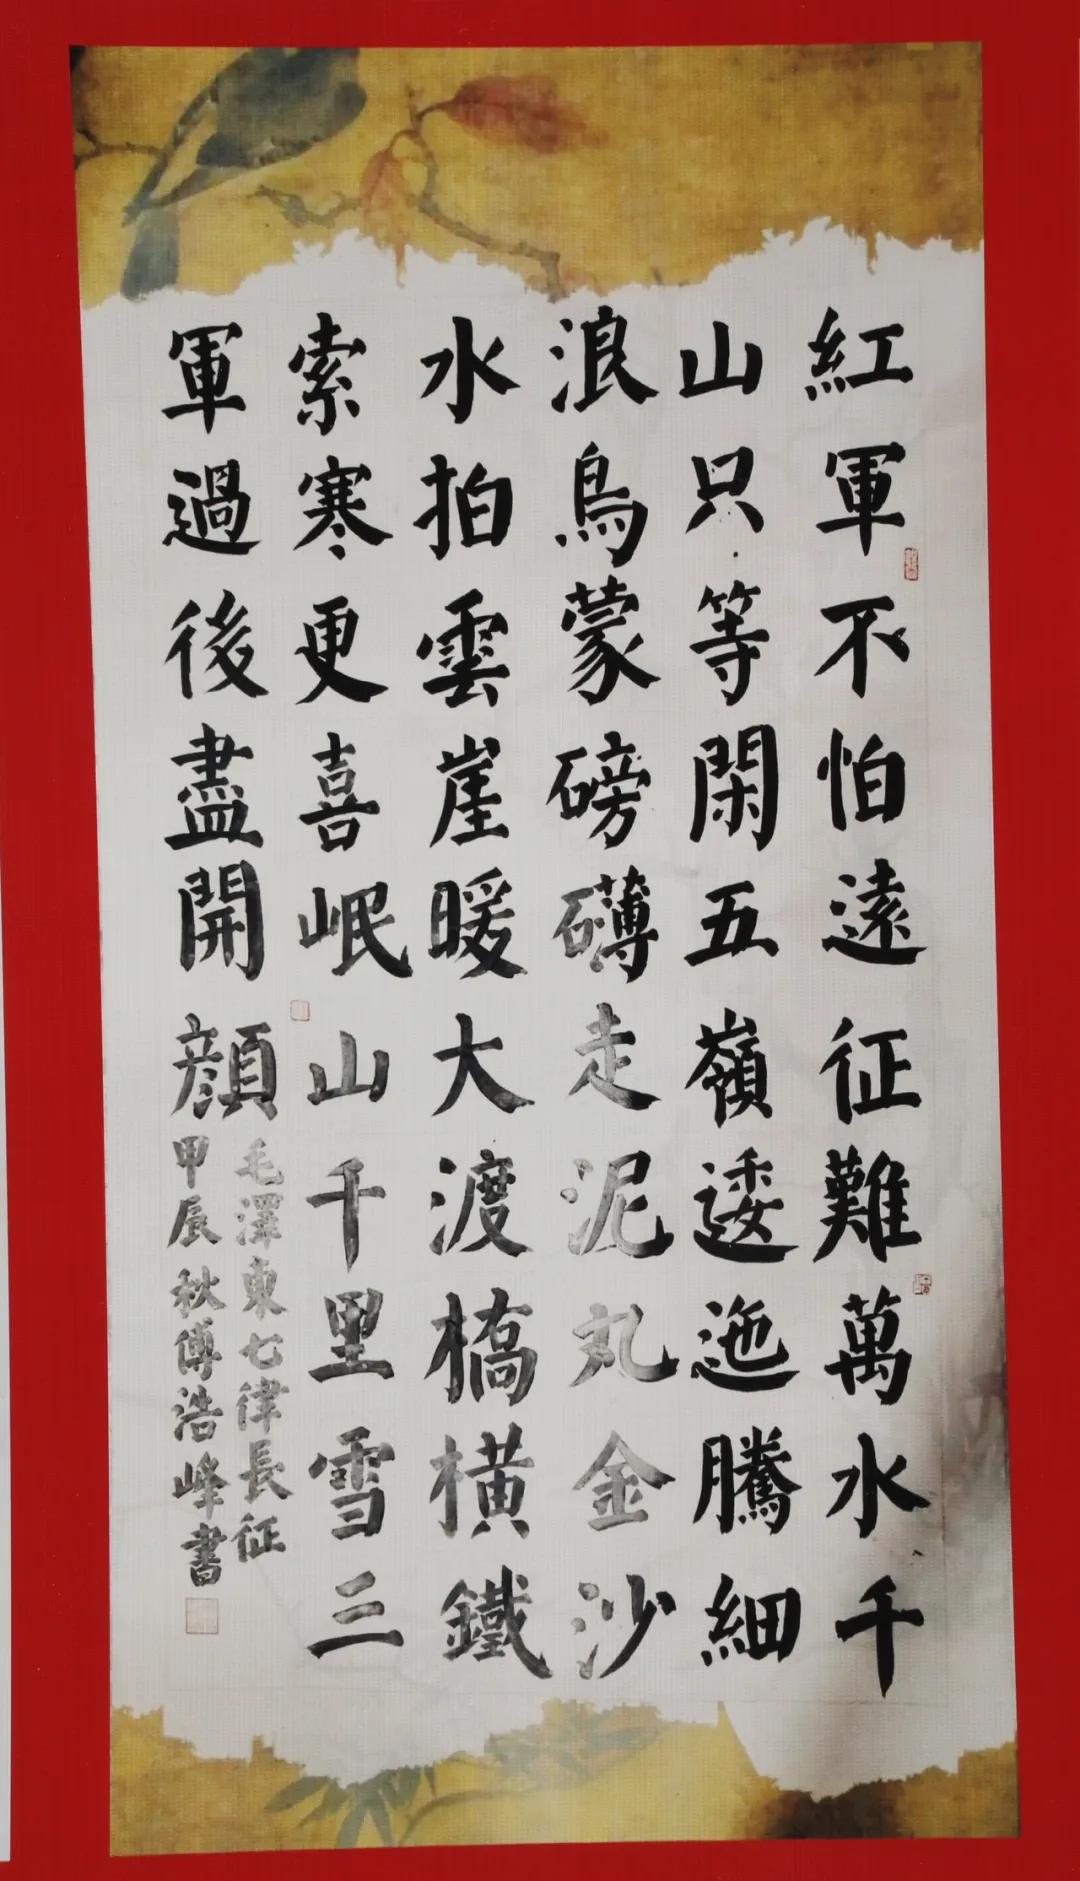 紅軍不怕遠征難萬水千
山只等閑五嶺逶迤騰細
浪鳥蒙磅礴走泥丸金沙
水拍雲崖暖大渡橋橫鐵
索寒更喜岷山千里雪三
軍過後盡開顔
毛澤東七律長征
甲辰秋傅浩峰書